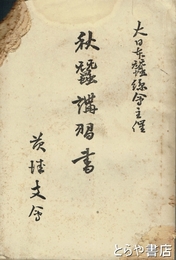 大日本蚕絲会主催
秋蚕講習書
茨城支会
とらや書店